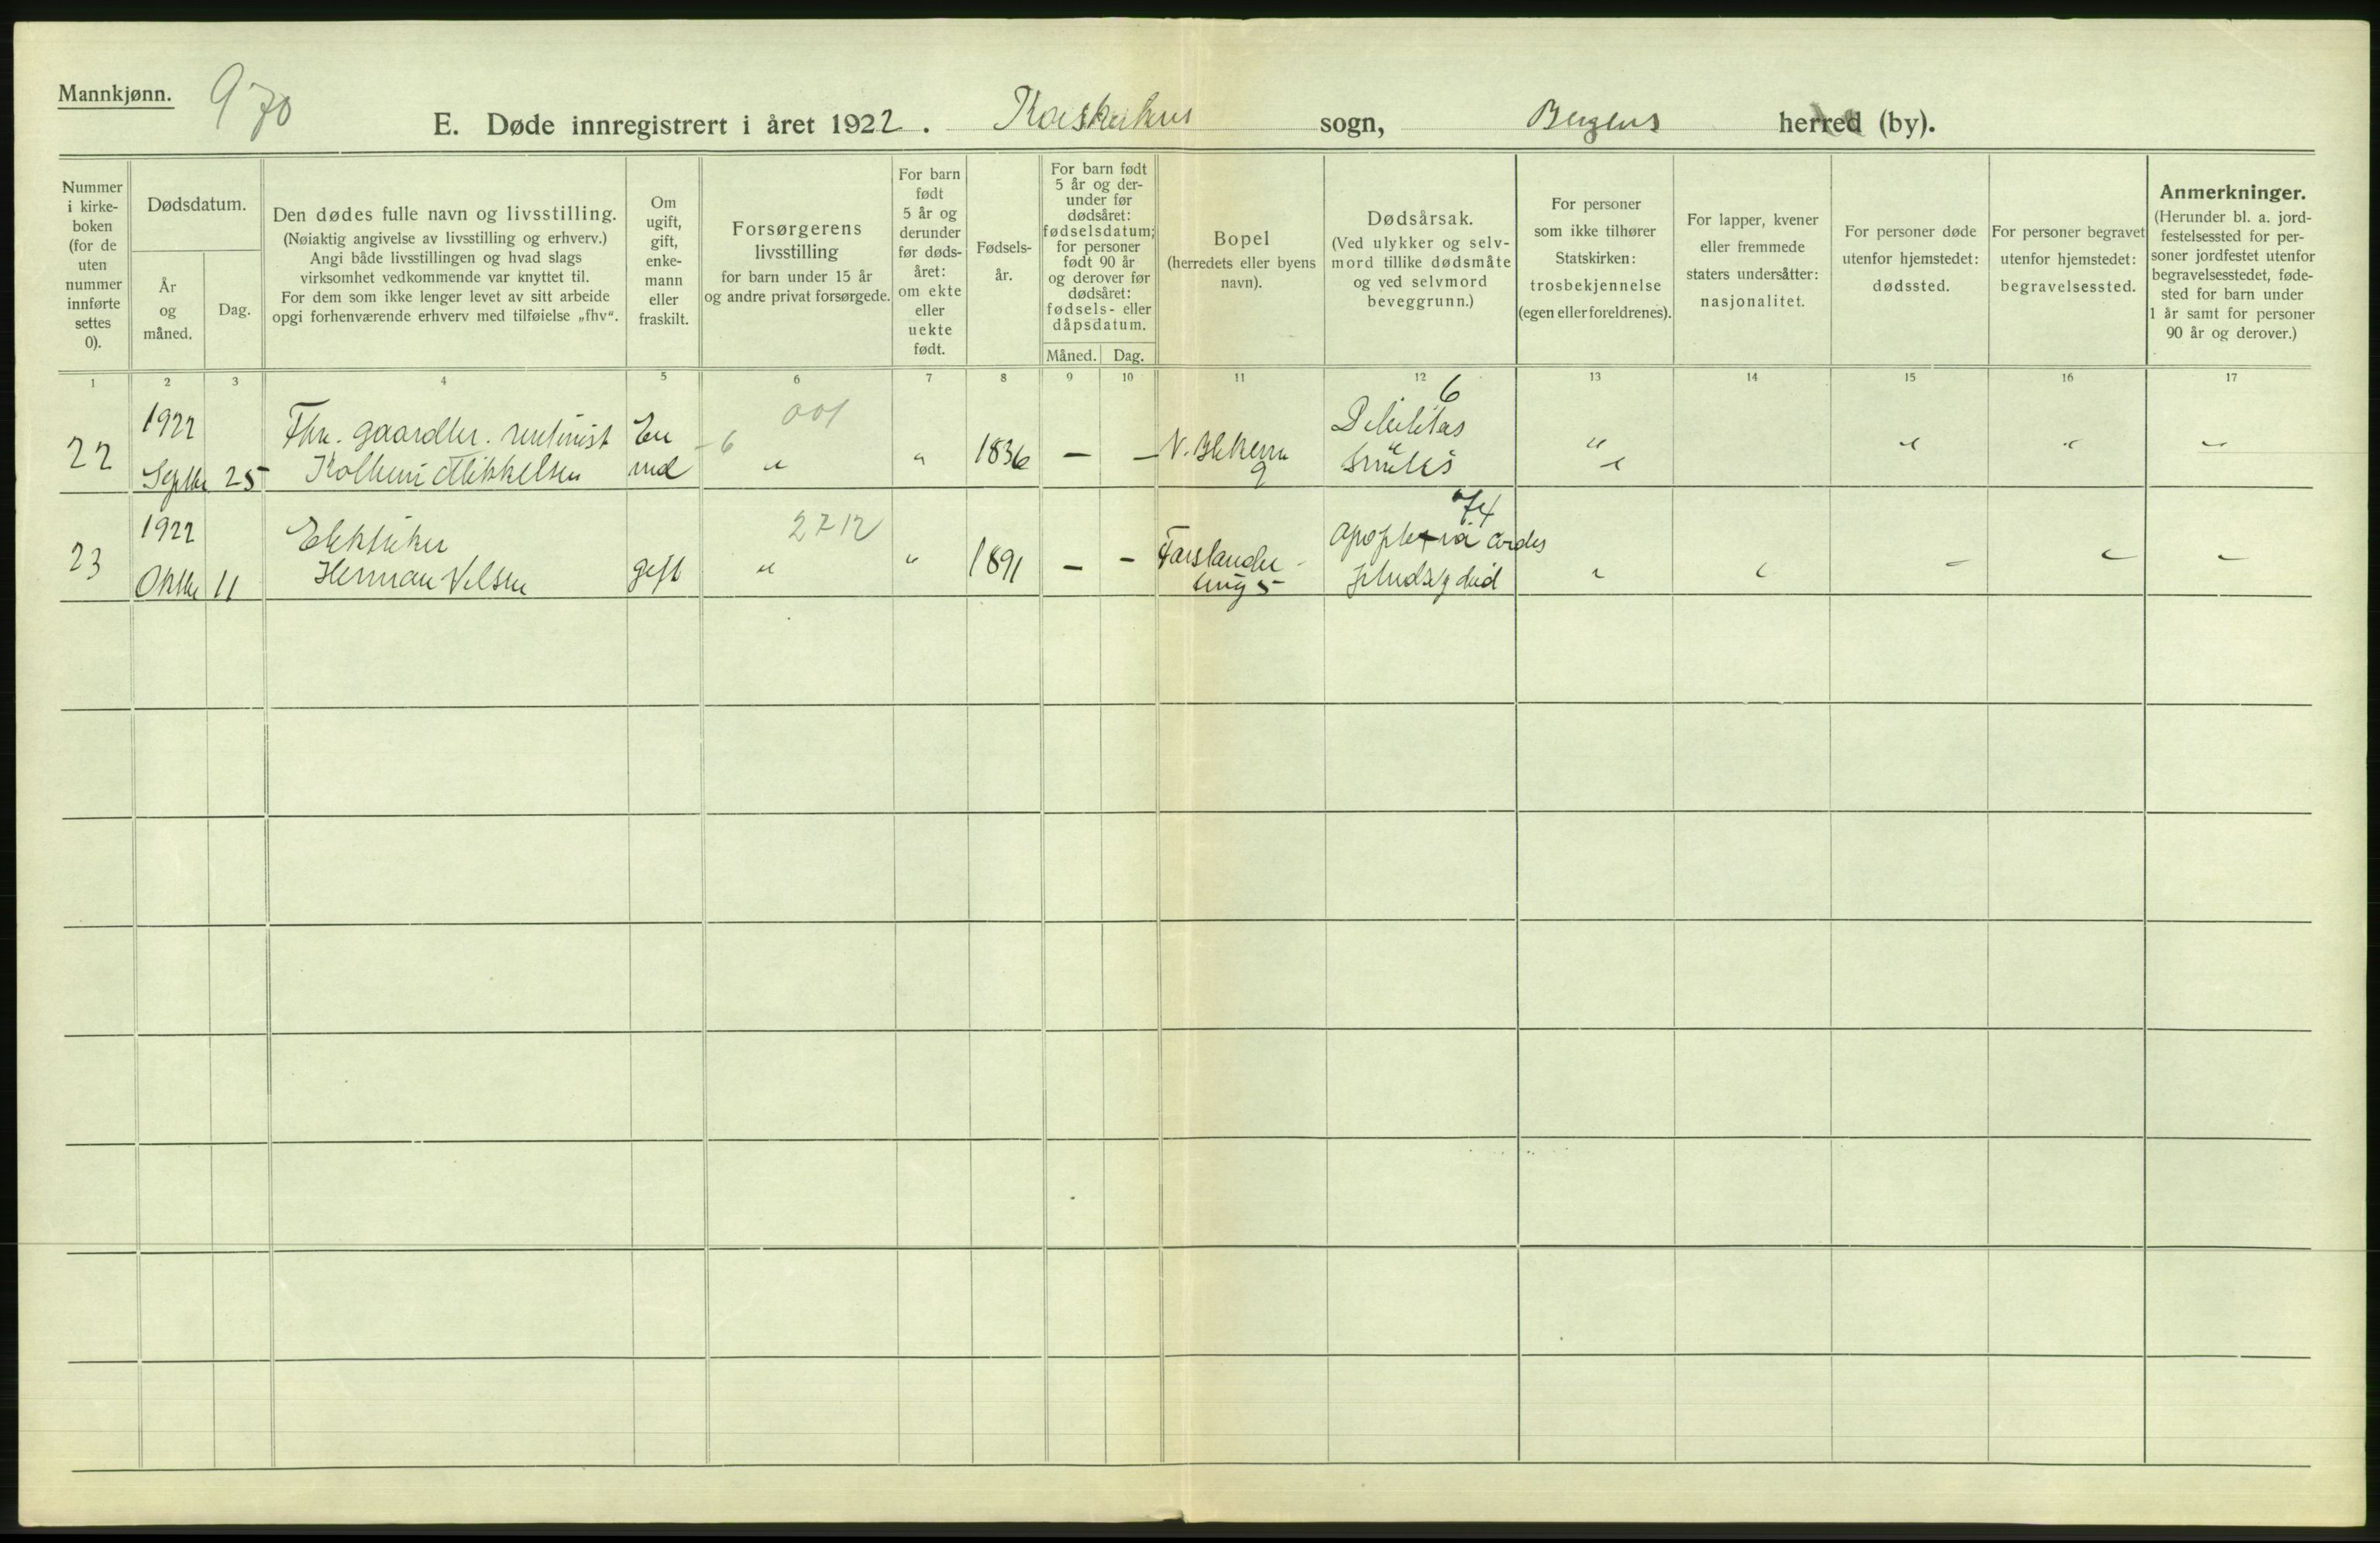 Mannkjønn.
970
E. Døde innregistrert i året 1922. Korskirkens sogn, Bergens herred (by).
Nummer
i kirke-
boken
(for de
uten
nummer
innførte
settes
0).
Dødsdatum.
År
og
måned.
Dag.
Den dødes fulle navn og livsstilling.
(Nøiaktig angivelse av livsstilling og erhverv.)
Angi både livsstillingen og hvad slags
virksomhet vedkommende var knyttet til.
For dem som ikke lenger levet av sitt arbeide
opgi forhenværende erhverv med tilføielse „fhv“.
Om
ugift,
gift,
enke-
mann
eller
fraskilt.
Forsørgerens
livsstilling
for barn under 15 år
og andre privat forsørgede.
For barn
født
5 år og
derunder
før døds-
året:
om ekte
eller
uekte
født.
Fødsels-
år.
For barn født
5 år og der-
under før
dødsåret:
fødselsdatum;
for personer
født 90 år
og derover før
dødsåret:
fødsels- eller
dåpsdatum.
Måned. Dag.
Bopel
(herredets eller byens
navn).
Dødsårsak.
(Ved ulykker og selv-
mord tillike dødsmåte
og ved selvmord
beveggrunn.)
For personer
som ikke tilhører
Statskirken:
trosbekjennelse
(egen eller foreldrenes).
For lapper, kvener
eller fremmede
staters undersåtter:
nasjonalitet.
For personer døde
utenfor hjemstedet:
dødssted.
For personer begravet
utenfor hjemstedet:
begravelsessted.
Anmerkninger.
(Herunder bl. a. jord-
festelsessted for per-
soner jordfestet utenfor
begravelsesstedet, føde-
sted for barn under
1 år samt for personer
90 år og derover.)
1 2 3 4 5 6 7 8 9 10 11 12 13 14 15 16 17
22
1922
Septbr 25
Fhv. gaardbr. rentenist
Kolbeini Mikkelsen
En
md
001
-6 "
"
1836
— —
9
6
Debilitas
senilis
" " " "
23
1922
Oktbr 11
Elektriker
Herman Nilsen
gift
2712
"
"
1891
— —
5
74
Apoplexia cordis
pludselig død
" " - " -